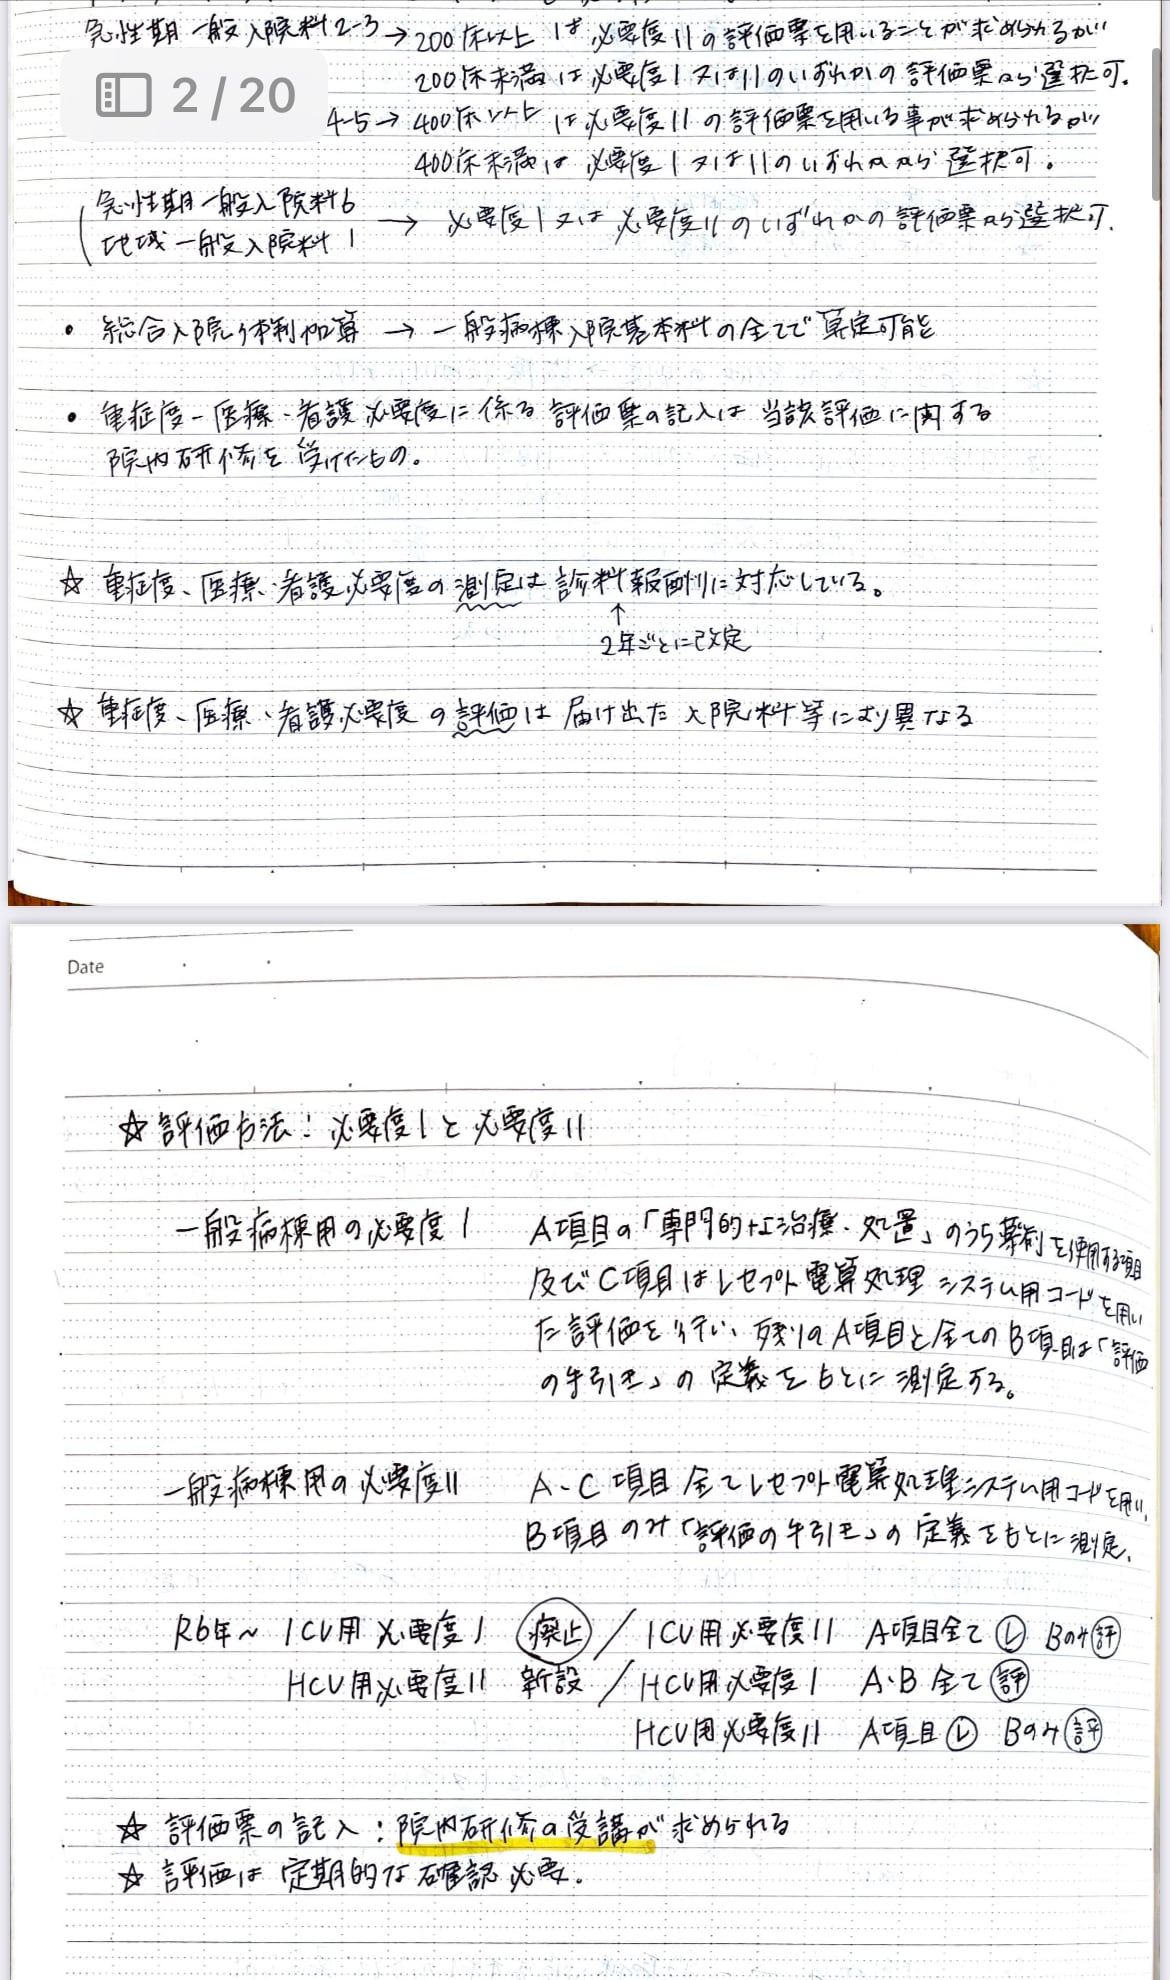 急性期一般入院料2-3→200床以上は必要度IIの評価票を用いることが求められるが
200床未満は必要度I又はIIのいずれかの評価票から選択可.
2 / 20
4-5→400床以上は必要度IIの評価票を用いる事が求められるが
400床未満は必要度I又はIIのいずれかから選択可。
急性期一般入院料6
地域一般入院料1
→ 必要度I又は必要度IIのいずれかの評価票から選択可.
・総合入院体制加算 → 一般病棟入院基本料の全てで算定可能
・重症度-医療・看護必要度に係る評価票の記入は当該評価に関する
院内研修を受けたもの。
☆重症度、医療・看護必要度の測定は診料報酬に対応している。
↑
2年ごとに改定
☆重症度、医療・看護必要度の評価は届け出た入院料等により異なる
Date
☆評価方法:必要度Iと必要度II
一般病棟用の必要度I A項目の「専門的な治療・処置」のうち薬剤を使用する項目
及びC項目はレセプト電算処理システム用コードを用い
た評価を行い、残りのA項目と全てのB項目は「評価
の手引き」の定義をもとに測定する。
一般病棟用の必要度II A・C項目全てレセプト電算処理システム用コードを用い、
B項目のみ「評価の手引き」の定義をもとに測定.
R6年~ ICU用必要度I 廃止 / ICU用必要度II A項目全てレ Bのみ評
HCU用必要度II 新設 / HCU用必要度I A・B全て評
HCU用必要度II A項目レ Bのみ評
☆評価票の記入:院内研修の受講が求められる
☆評価は定期的な確認必要.